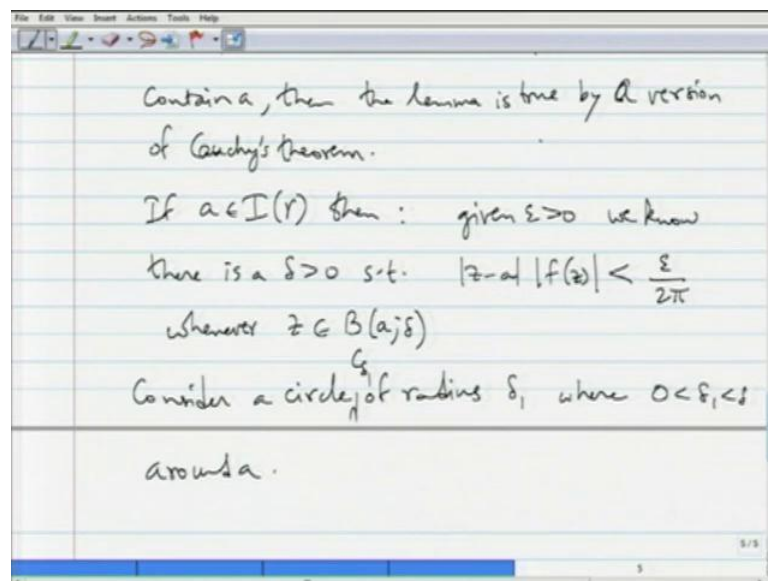 File Edit View Insert Actions Tools Help
Contain a, then the lemma is true by a version
of Cauchy's theorem.
If a ∈ I(γ) then : given ε>0 we know
there is a δ>0 s.t. |z-a| |f(z)| < ε/2π
whenever z ∈ B(a;δ)
Consider a circle, C_δ₁ of radius δ₁ where 0<δ₁<δ
around a.
5/5
5